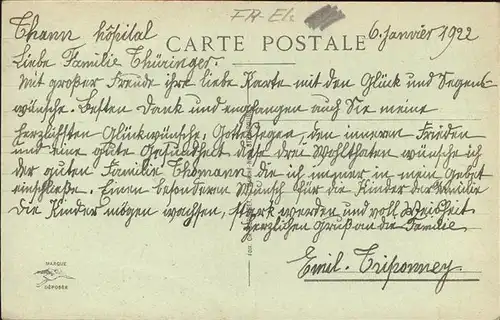 FR-El.
Thann hôpital
6. Janvier 1922
CARTE POSTALE
Liebe Familie Thüringer.
Mit großer Freude ihre liebe Karte mit den Glück und Segens-
wünsche. Besten Dank und empfangen auch Sie meine
herzlichsten Glückwünsche, Gottessegen, den inneren Frieden
und eine gute Gesundheit diese drei Wohlthaten wünsche ich
der guten Familie Thomann die ich immer in mein Gebet
einschließe. Einen besonderen Wunsch für die Kinder der Familie
Die Kinder mögen wachsen, stark werden und voll Weisheit
Herzlichen Gruß an die Familie
Emil. Triponney
MARQUE
DÉPOSÉE